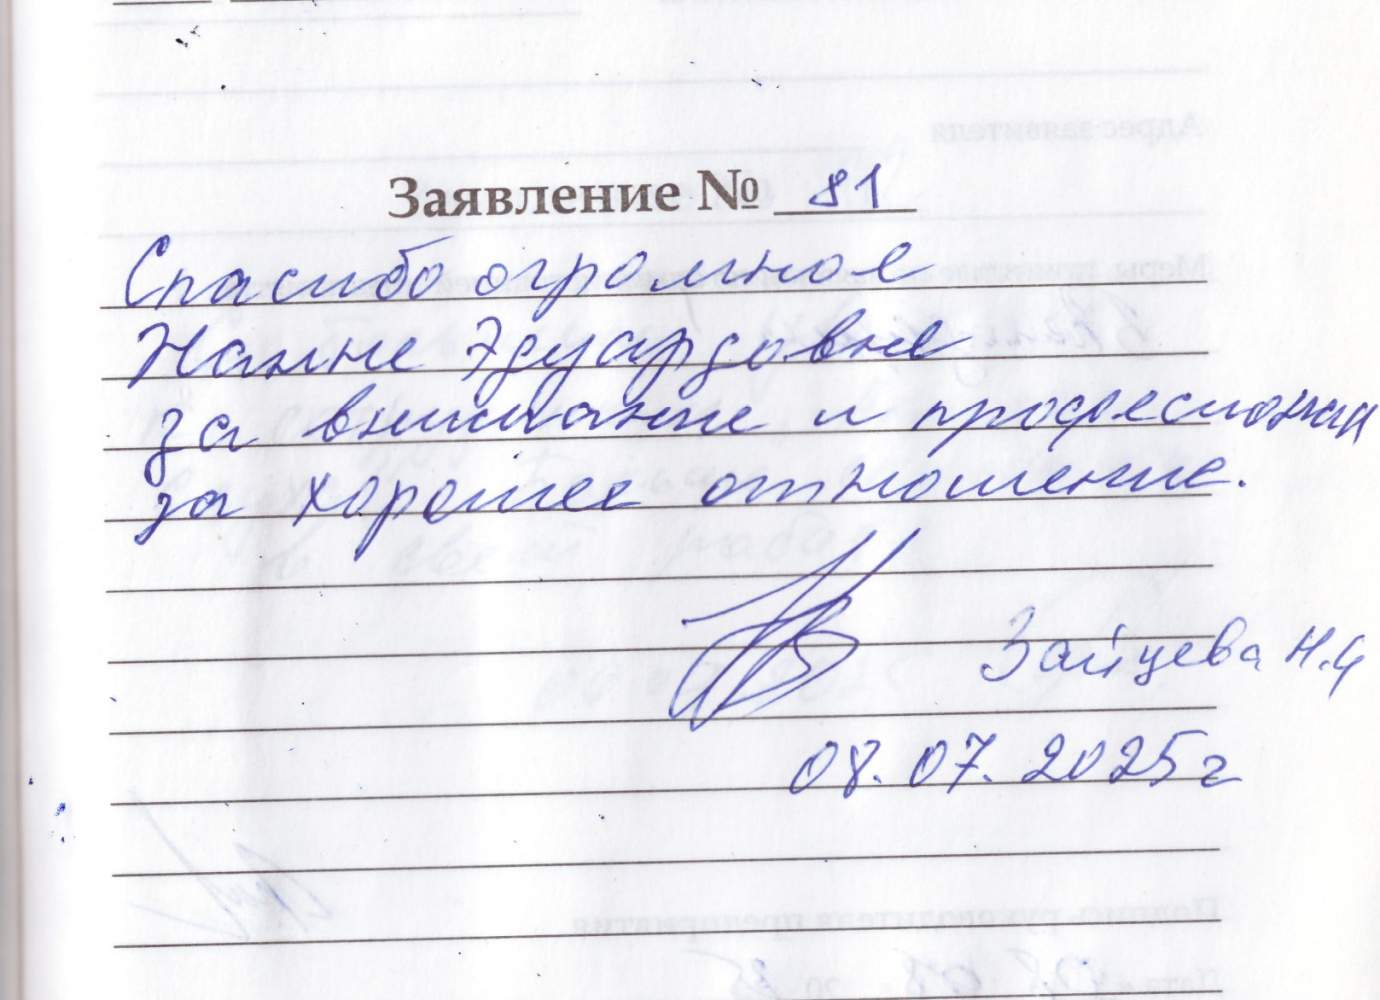 Заявление № 81
Спасибо огромное
Жанне Эдуардовне
за внимание и професионал
за хорошее отношение.
Зайцева Н.
08.07.2025г